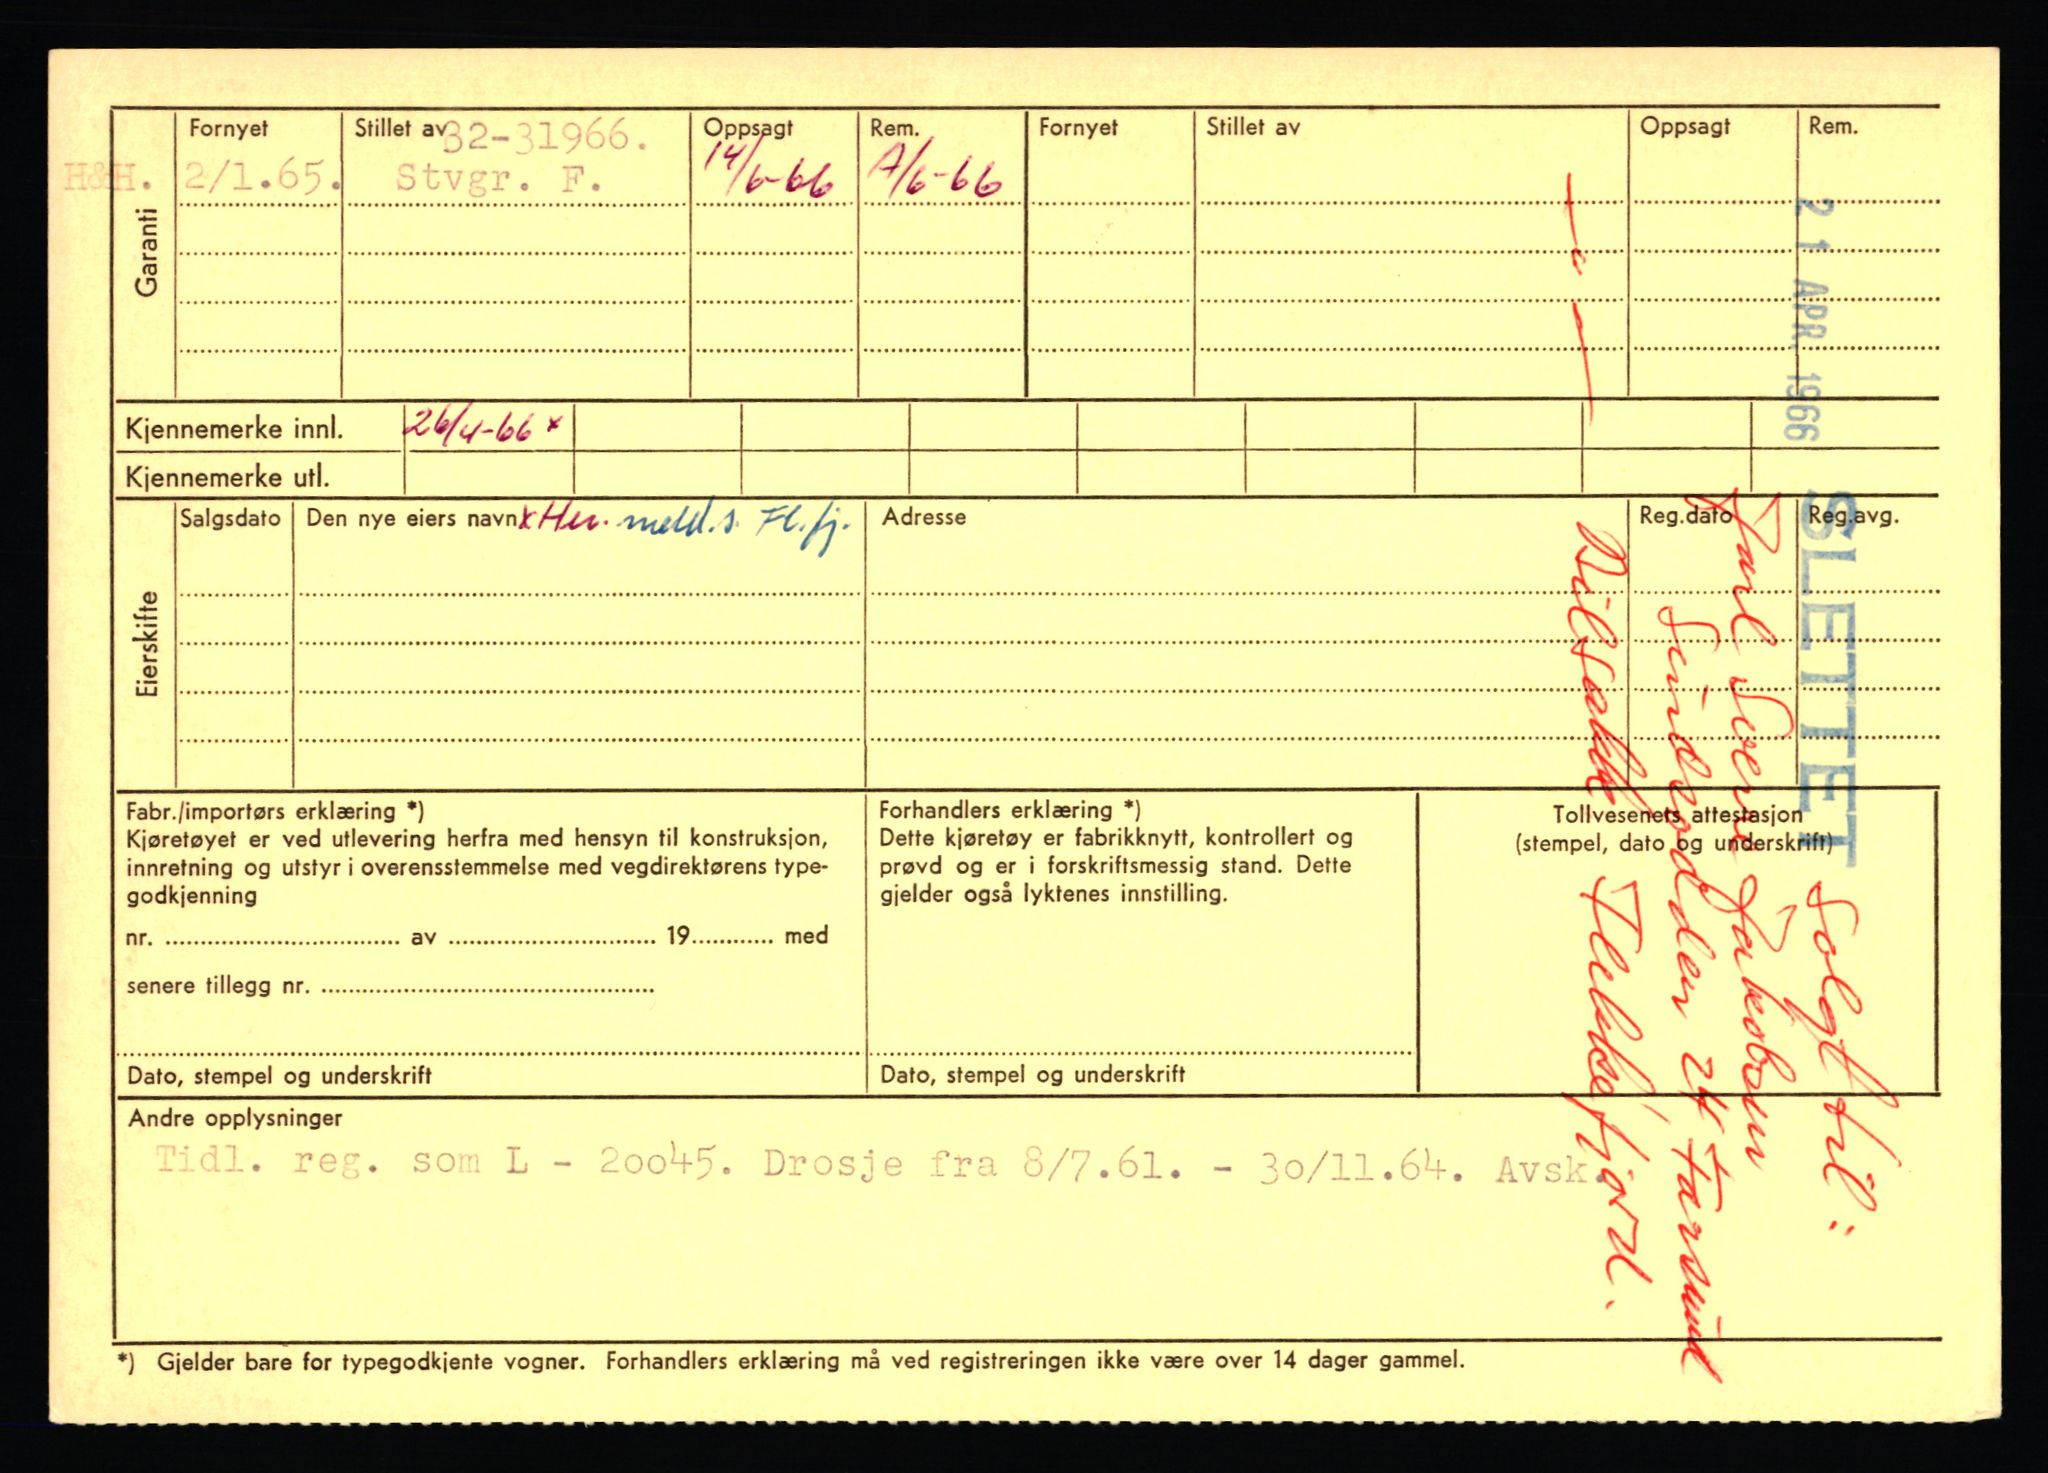 Garanti
Fornyet
Stillet av
Oppsagt
Rem.
Fornyet
Stillet av
Oppsagt
Rem.
32-31966.
H&H. 2/1.65. Stvgr. F. 14/6-66
Kjennemerke innl. 26/4-66 x
Kjennemerke utl.
Eierskifte
Salgsdato
Den nye eiers navn
x Hen. meld. s. Fl.fj.
Adresse
Reg.dato
Reg.avg.
Fabr./importørs erklæring *)
Kjøretøyet er ved utlevering herfra med hensyn til konstruksjon,
innretning og utstyr i overensstemmelse med vegdirektørens type-
godkjenning
nr. ........ av ........ 19........ med
senere tillegg nr. ........
Dato, stempel og underskrift
Forhandlers erklæring *)
Dette kjøretøy er fabrikknytt, kontrollert og
prøvd og er i forskriftsmessig stand. Dette
gjelder også lyktenes innstilling.
Dato, stempel og underskrift
Tollvesenets attestasjon
(stempel, dato og underskrift)
Andre opplysninger
Tidl. reg. som L - 20045. Drosje fra 8/7.61. - 30/11.64. Avsk.
*) Gjelder bare for typegodkjente vogner. Forhandlers erklæring må ved registreringen ikke være over 14 dager gammel.
21 APR. 1966 SLETTET
Solgt til:
Jakobsen
Sundsodden 24 Farsund
Bilsakk. Flekkefjord.